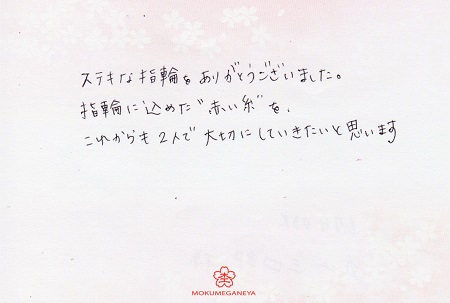 ステキな指輪をありがとうございました。
指輪に込めた"赤い糸"を、
これからも2人で大切にしていきたいと思います
MOKUMEGANEYA